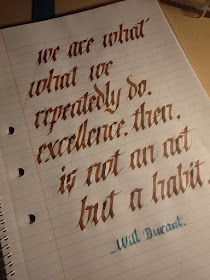 we are what
what we
repeatedly do.
excellence, then,
is not an act
but a habit.
Will Durant.